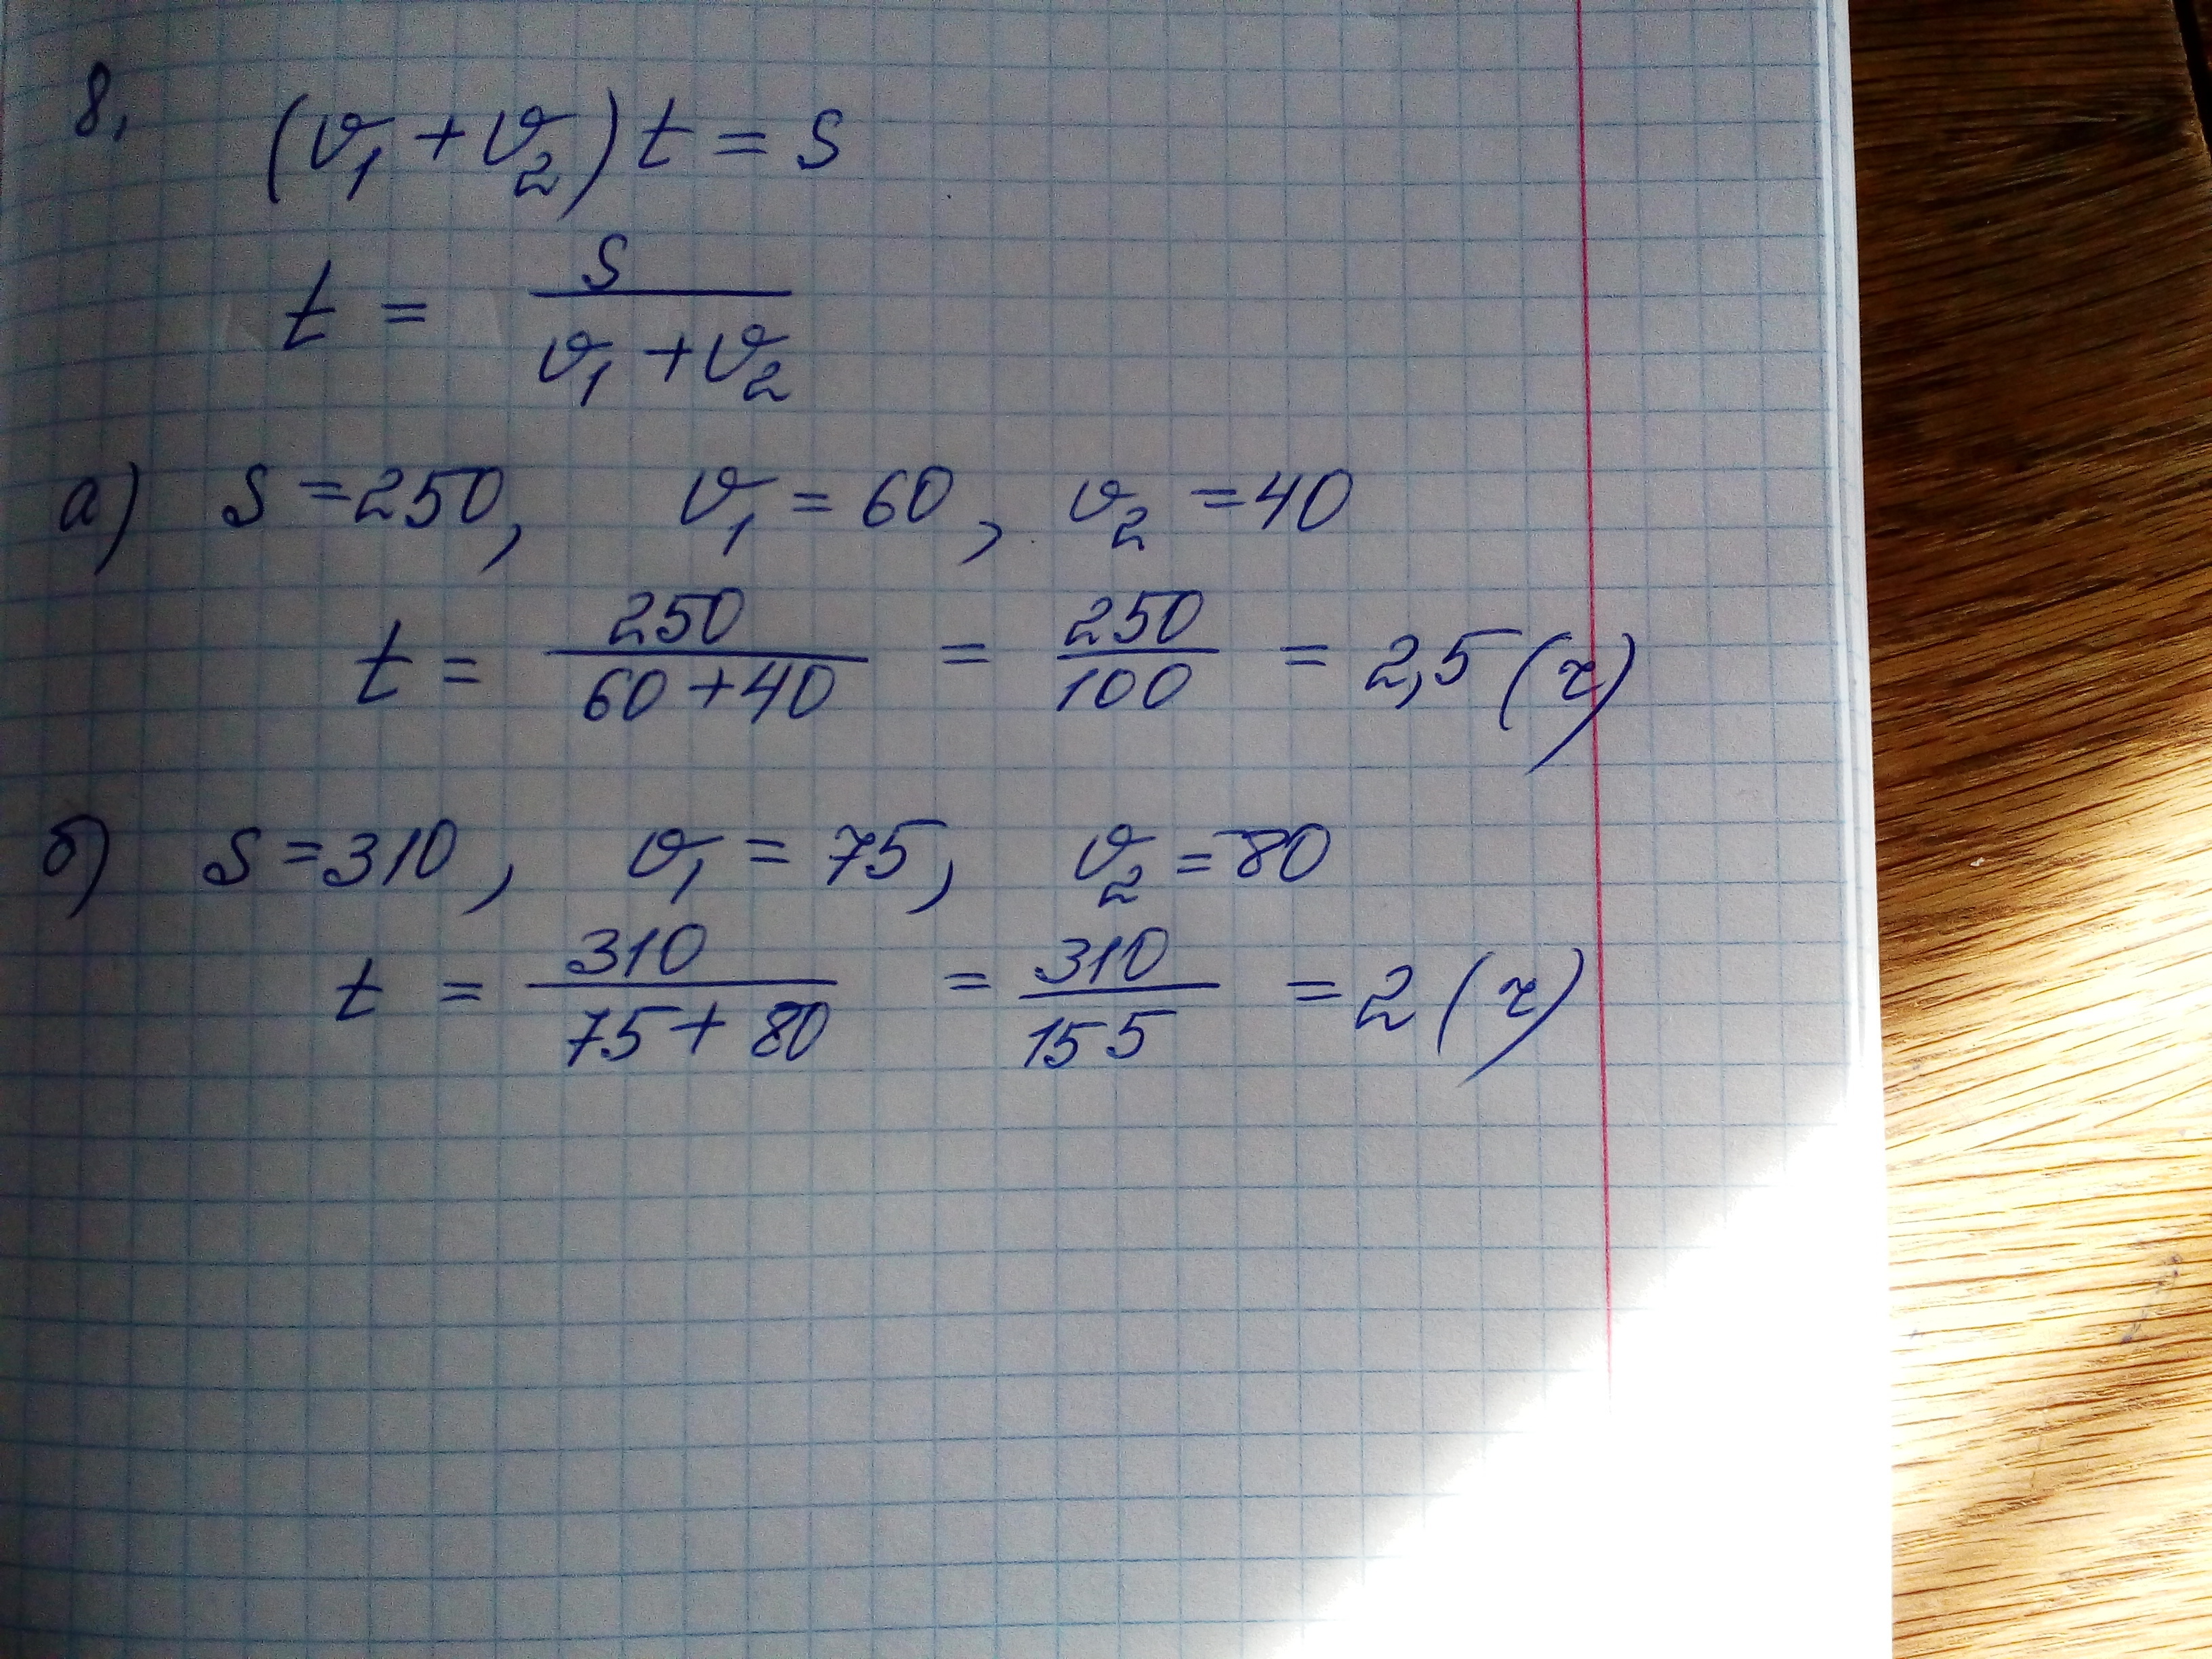 8. (v₁ + v₂) t = s
t = s / (v₁ + v₂)
а) s = 250, v₁ = 60, v₂ = 40
t = 250 / (60 + 40) = 250 / 100 = 2,5 (ч)
б) s = 310, v₁ = 75, v₂ = 80
t = 310 / (75 + 80) = 310 / 155 = 2 (ч)